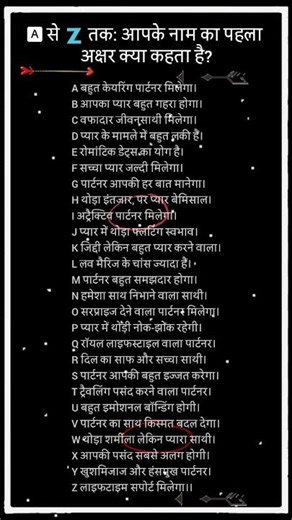 A से Z तक: आपके नाम का पहला
अक्षर क्या कहता है?
A बहुत केयरिंग पार्टनर मिलेगा।
B आपका प्यार बहुत गहरा होगा।
C वफादार जीवनसाथी मिलेगा।
D प्यार के मामले में बहुत लकी हैं।
E रोमांटिक डेट्स का योग है।
F सच्चा प्यार जल्दी मिलेगा।
G पार्टनर आपकी हर बात मानेगा।
H थोड़ा इंतजार, पर प्यार बेमिसाल।
I अट्रैक्टिव पार्टनर मिलेगा।
J प्यार में थोड़ा फ्लर्टिंग स्वभाव।
K जिद्दी लेकिन बहुत प्यार करने वाला।
L लव मैरिज के चांस ज्यादा हैं।
M पार्टनर बहुत समझदार होगा।
N हमेशा साथ निभाने वाला साथी।
O सरप्राइज देने वाला पार्टनर मिलेगा।
P प्यार में थोड़ी नोक-झोंक रहेगी।
Q रॉयल लाइफस्टाइल वाला पार्टनर।
R दिल का साफ और सच्चा साथी।
S पार्टनर आपकी बहुत इज्जत करेगा।
T ट्रैवलिंग पसंद करने वाला पार्टनर।
U बहुत इमोशनल बॉन्डिंग होगी।
V पार्टनर का साथ किस्मत बदल देगा।
W थोड़ा शर्मीला लेकिन प्यारा साथी।
X आपकी पसंद सबसे अलग होगी।
Y खुशमिजाज और हंसमुख पार्टनर।
Z लाइफटाइम सपोर्ट मिलेगा।।